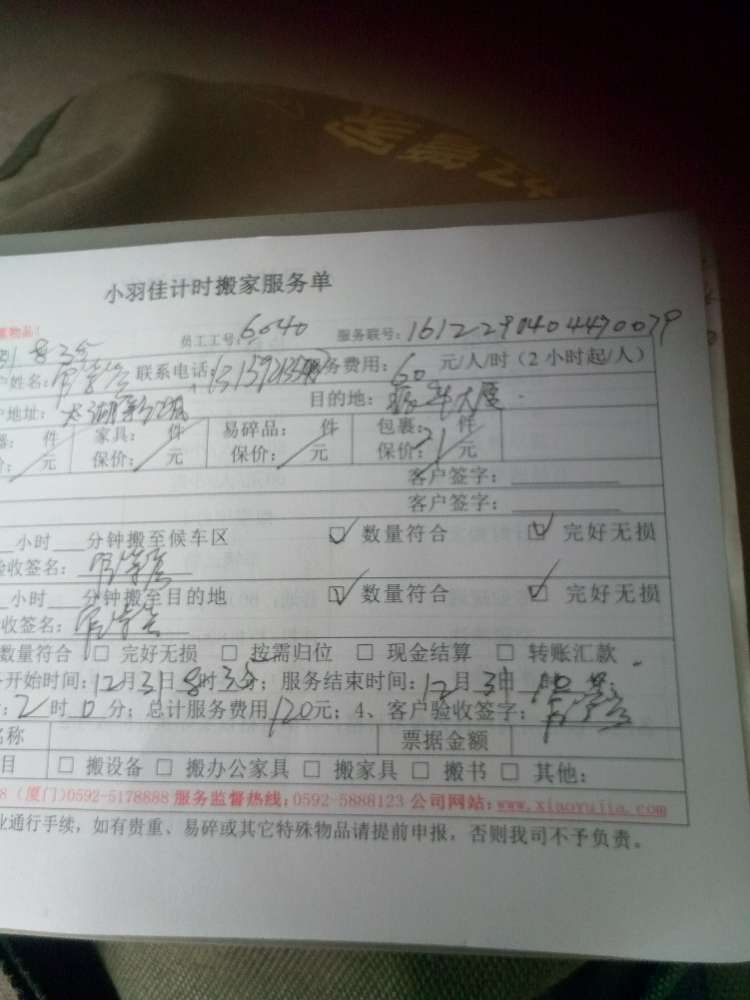 管家
小羽佳计时搬家服务单
员工工号:6040 服务联号:1612290404470079
姓名: 联系电话: 服务费用:60 元/人/时(2小时起/人)
地址:太湖新城 目的地: 大厦
件 家具: 件 易碎品: 件 包裹: 件
元 保价: 元 保价: 元 保价: 元
客户签字:
客户签字:
小时 分钟搬至候车区 ☑ 数量符合 ☑ 完好无损
收签名:
小时 分钟搬至目的地 ☑ 数量符合 ☑ 完好无损
收签名:
数量符合 □ 完好无损 □ 按需归位 □ 现金结算 □ 转账汇款
开始时间:12月31日8时35分;服务结束时间:12月31日
:2时0分;总计服务费用120元;4、客户验收签字:
名称 票据金额
目 □ 搬设备 □ 搬办公家具 □ 搬家具 □ 搬书 □ 其他:
8(厦门)0592-5178888 服务监督热线:0592-5888123 公司网站:www.xiaoyujia.com
业通行手续,如有贵重、易碎或其它特殊物品请提前申报,否则我司不予负责。